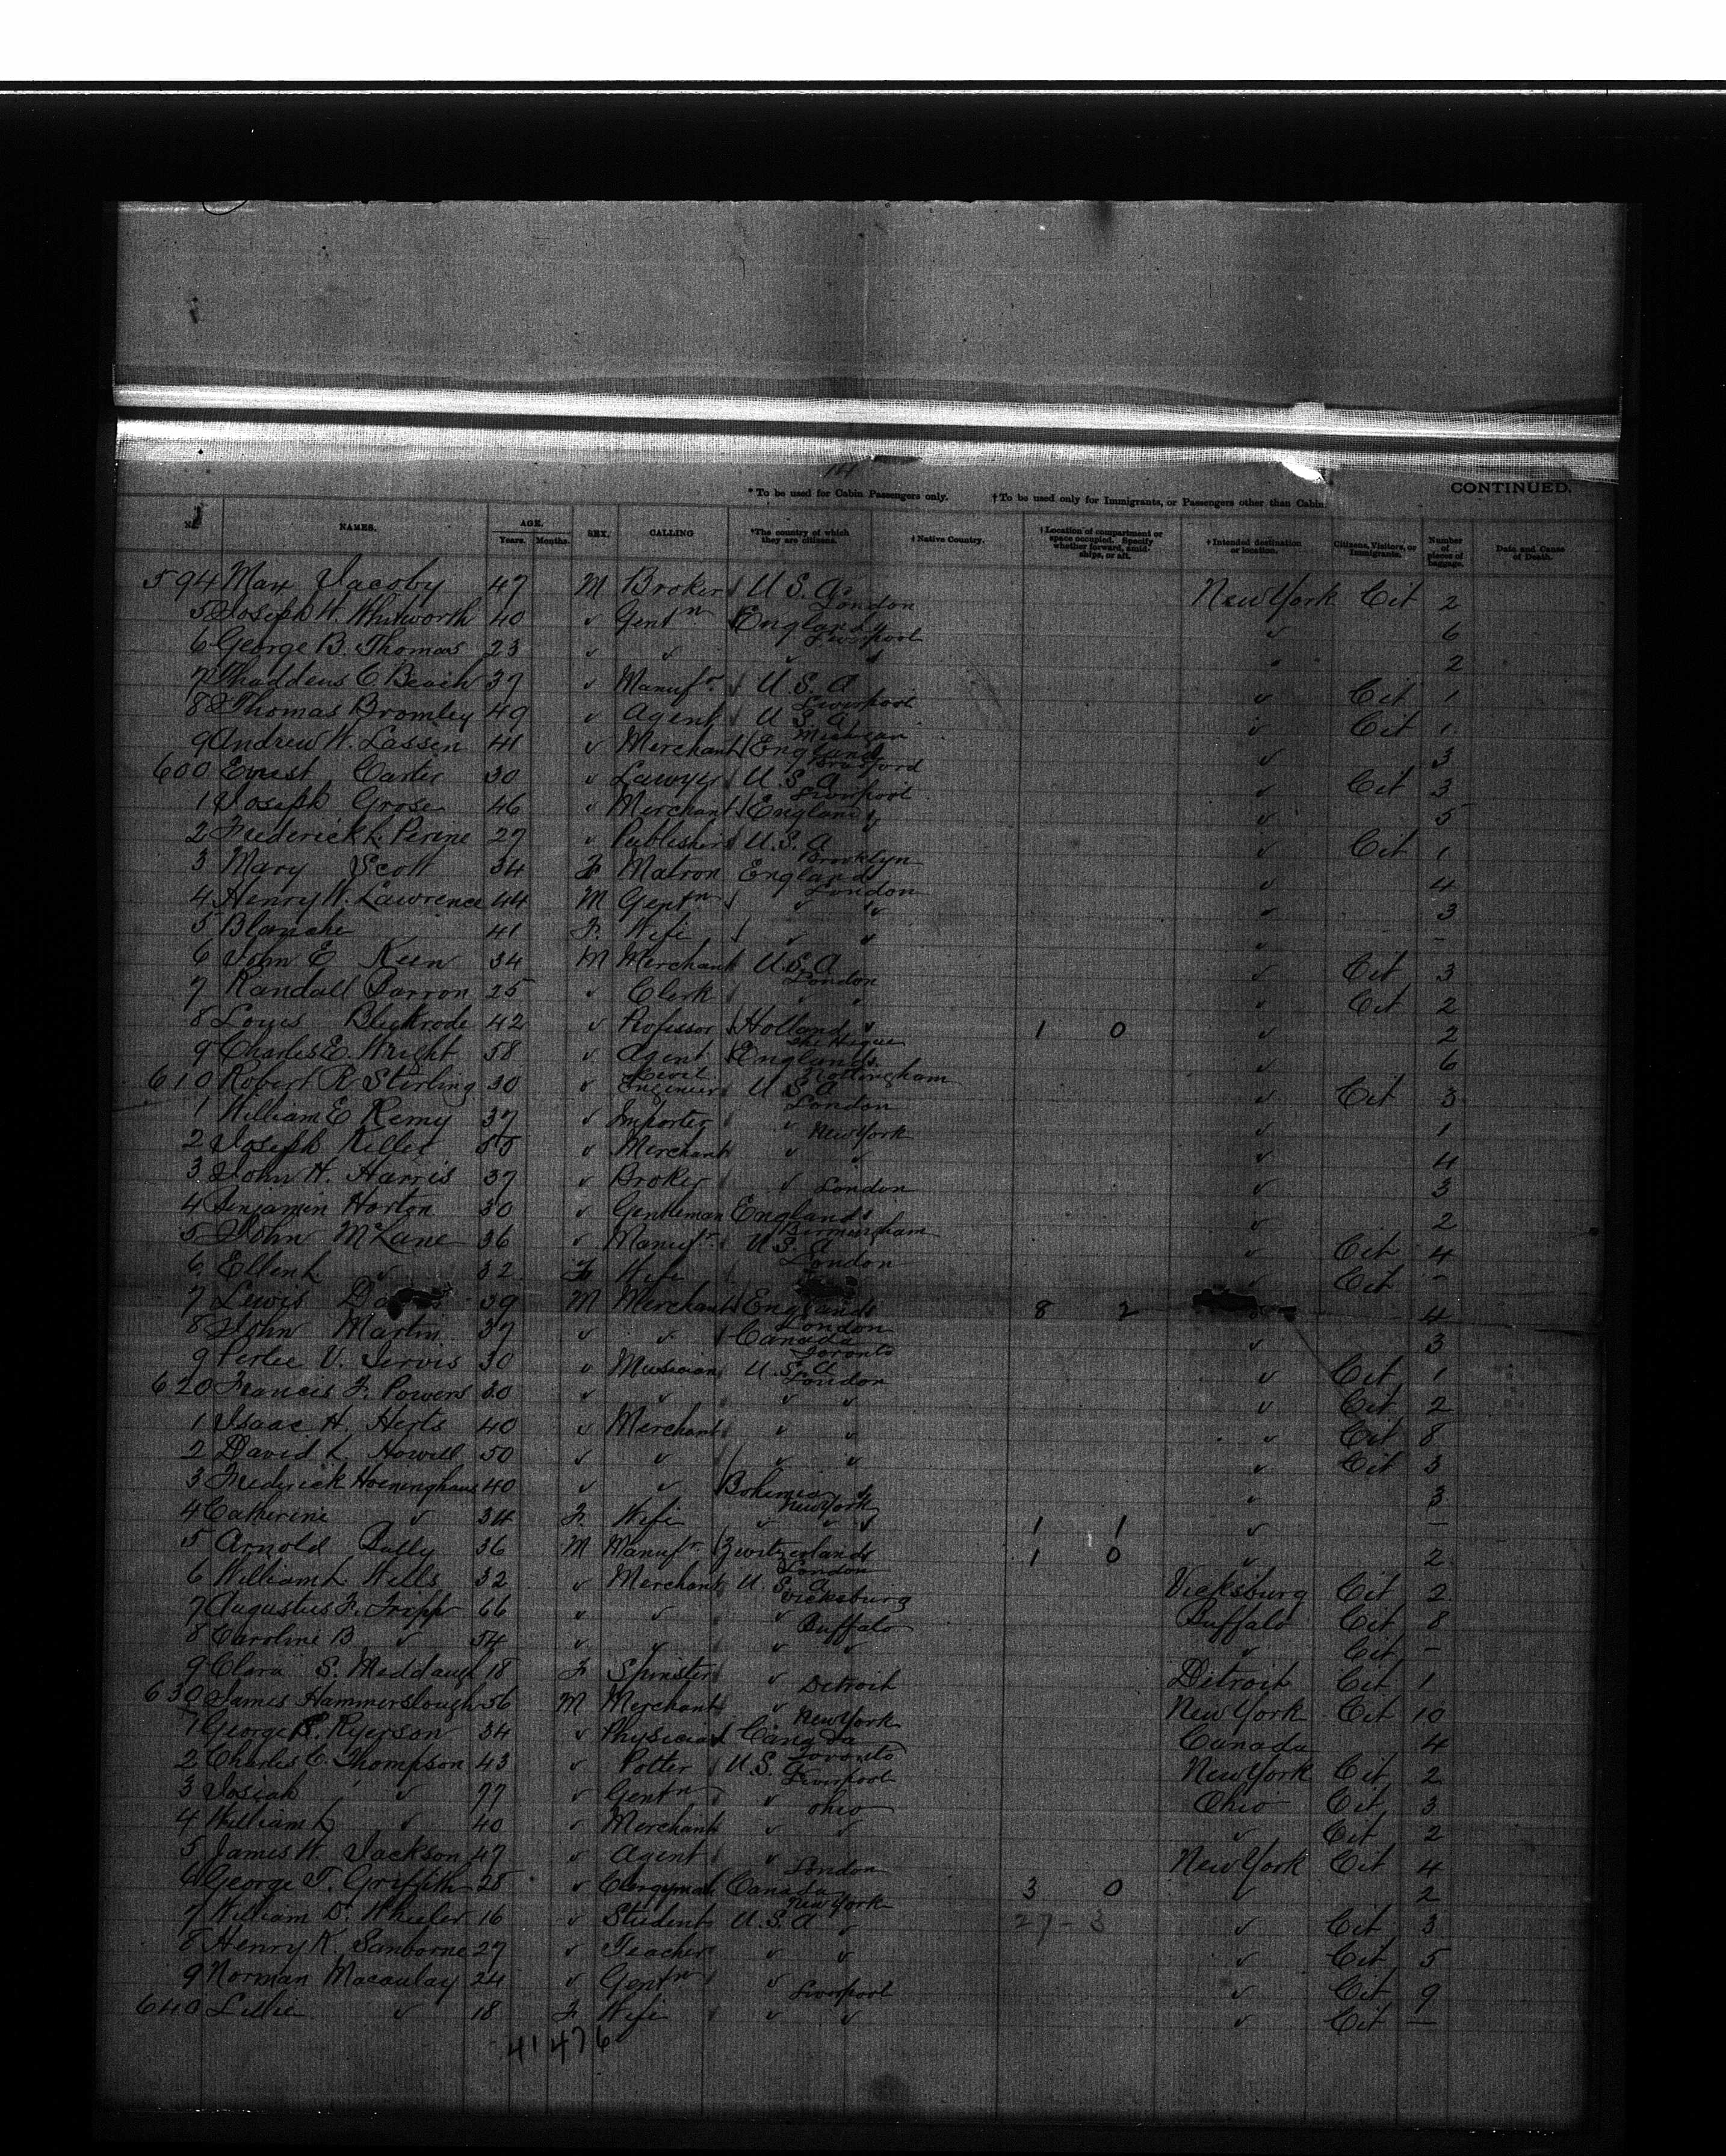 * To be used for Cabin Passengers only. † To be used only for Immigrants, or Passengers other than Cabin. CONTINUED.
NAMES. AGE. Years. Months. SEX. CALLING *The country of which they are citizens. † Native Country. † Location of compartment or space occupied. Specify whether forward, amidships, or aft. † Intended destination or location. Citizens, Visitors, or Immigrants. Number of pieces of baggage. Date and Cause of Death.
594 Max Jacoby 47 M Broker U.S.A. London New York Cit 2
5 Joseph W. Whitworth 40 " Gentn England Liverpool " 6
6 George B. Thomas 23 " " " " " 2
7 Thaddeus C Beach 37 " Manufr. U.S.A Liverpool " Cit 1
8 Thomas Bromley 49 " Agent U.S.A Michigan " Cit 1
9 Andrew W. Lassen 41 " Merchant England Bradford " 3
600 Ernest Carter 30 " Lawyer U.S.A Liverpool " Cit 3
1 Joseph Grose 46 " Merchant England " " 5
2 Frederick L. Perine 27 " Publisher U.S.A Brooklyn " Cit 1
3 Mary Scott 34 F Matron England London " 4
4 Henry W. Lawrence 44 M Gentn " " " 3
5 Blanche 41 F. Wife " " " -
6 John E Keen 34 M Merchant U.S.A London " Cit 3
7 Randall 25 " Clerk " " " Cit 2
8 Louis Bleekrode 42 " Professor Holland The Hague 1 0 " 2
9 Charles E. Wright 58 " Agent England Nottingham " 6
610 Robert R Sterling 30 " Civil Engineer U.S.A London " Cit 3
1 William E Remy 37 " Importer " New York " 1
2 Joseph Keller 55 " Merchant " " " 4
3 John H. Harris 37 " Broker " London " 3
4 Benjamin Horton 30 " Gentleman England Birmingham " 2
5 John McLane 36 " Manufr. U.S.A London " Cit 4
6 Ellen L " 32 F Wife " Cit -
7 Lewis 39 M Merchant England London 8 2 4
8 John Martin 37 " " Canada Toronto " 3
9 Perlee V. Jervis 30 " Musician U.S.A London " Cit 1
620 Francis F. Powers 30 " " " " " Cit 2
1 Isaac H. Herts 40 " Merchant " " " Cit 8
2 David L. Howell 50 " " " " " Cit 3
3 Frederick Hoeninghaus 40 " " Bohemia New York " 3
4 Catherine " 34 F. Wife " " 1 1 " -
5 Arnold Bally 36 M Manufr. Zwitzerland London 1 0 " 2
6 William L Wells 32 " Merchant U.S.A Vicksburg Vicksburg Cit 2
7 Augustus F. Tripp 66 " " " Buffalo Buffalo Cit 8
8 Caroline B " 54 " " " " " Cit -
9 Clara S. Meddaugh 18 F Spinster " Detroit Detroit Cit 1
630 James Hammerslough 56 M Merchant " New York New York Cit 10
1 George S. Ryerson 34 " Physician Canada Toronto Canada 4
2 Charles C. Thompson 43 " Potter U.S.A Liverpool New York Cit 2
3 Josiah " 77 " Gentn " Ohio Ohio Cit 3
4 William L " 40 " Merchant " " " Cit 2
5 James W. Jackson 47 " Agent " London New York Cit 4
6 George T. Griffith 28 " Clergyman Canada New York 3 0 " 2
7 William D. Wheeler 16 " Student U.S.A " 27-3 " Cit 3
8 Henry K. Sanborne 27 " Teacher " " " Cit 5
9 Norman Macaulay 24 " Gentn " Liverpool " Cit 9
640 Lillie " 18 F Wife " " " Cit —
41476